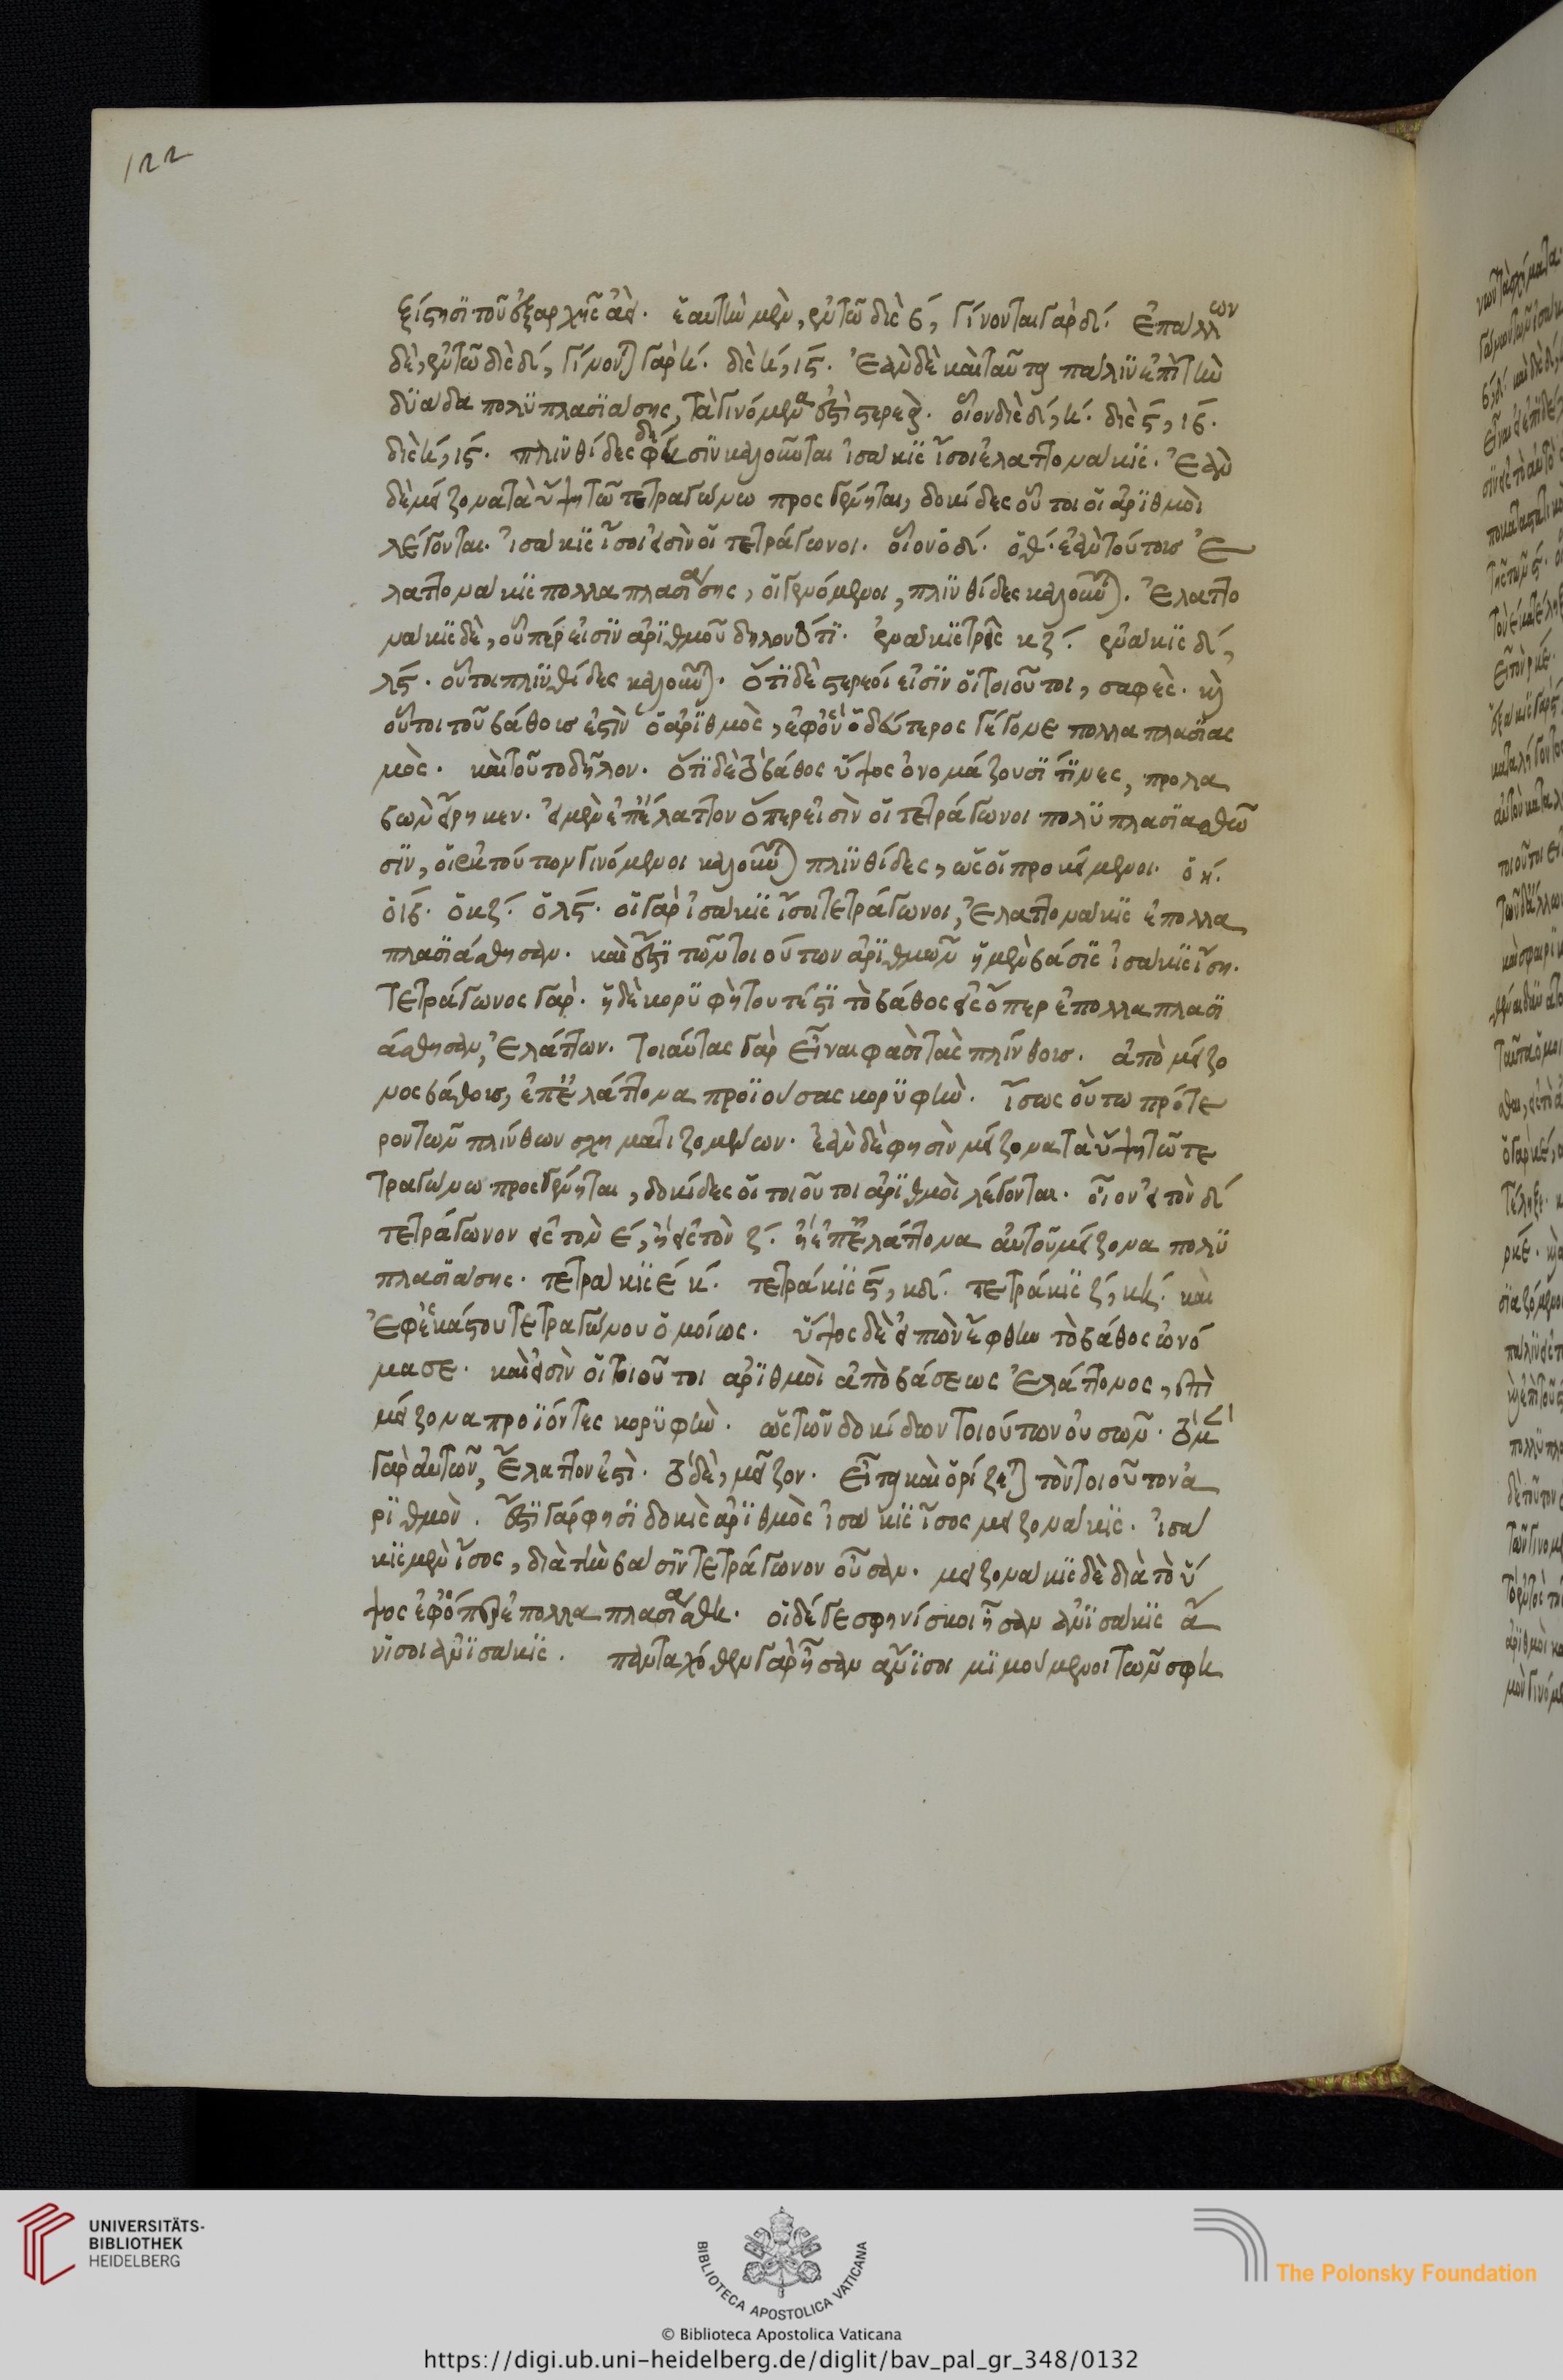 122
ξίστησι τοῦ ἐξαρχῆς ἀεί. ἑαυτὴν μὲν, ἐν τῷ δὶς β, γίνονται γὰρ δ. ἐπ' ἄλλων
δὲ, ἐν τῷ δὶς δ, γίνονται γὰρ η. δὶς η, ιϛ. Ἐὰν δὲ καὶ ταῦτα πάλϊν ἐπὶ τὴν
δϋάδα πολϋπλασϊάσῃς, τὰ γινόμενα ἐστὶ στερεά. οἷον δὶς δ, η. δὶς ϛ, ιβ.
δὶς η, ιϛ. πλϊνθίδες δέ φησϊν καλοῦνται ἰσάκϊς ἴσοι ἐλαττονάκϊς. Ἐὰν
δὲ μείζονα τὰ ὕψη τῷ τετραγώνῳ προσγένηται, δοκίδες οὗτοι οἱ ἀρϊθμοὶ
λέγονται. ἰσάκϊς ἴσοι εἰσὶν οἱ τετράγωνοι. οἷον ὁ δ. ὁ θ. ἐὰν τούτους ἐ
λαττονάκϊς πολλαπλασϊάσῃς, οἱ γενόμενοι, πλϊνθίδες καλοῦνται. Ἐλαττο
νάκϊς δὲ, οὗπέρ εἰσϊν ἀρϊθμοῦ δηλονότϊ. ἐνάκϊς τρεῖς κζ. ἐνάκϊς δ,
λϛ. οὗτοι πλϊνθίδες καλοῦνται. ὅτϊ δὲ στερεοί εἰσϊν οἱ τοιοῦτοι, σαφές. καὶ
οὗτοι τοῦ βάθους ἐστὶν ὁ ἀρϊθμὸς, ἐφ' ὃν ὁ δεύτερος γέγονε πολλαπλασϊας
μὸς. καὶ τοῦτο δῆλον. ὅτϊ δὲ τὸ βάθος ὕψος ὀνομάζουσϊ τϊνες, προλα
βὼν εἴρηκεν. εἰ μὲν ἐπ' ἔλαττον ὅπερ εἰσὶν οἱ τετράγωνοι πολϋπλασϊασθῶ
σϊν, οἱ ἐκ τούτων γινόμενοι καλοῦνται πλϊνθίδες, ὡς οἱ προκείμενοι. ὁ η.
ὁ ιβ. ὁ κζ. ὁ λϛ. οἱ γὰρ ἰσάκϊς ἴσοι τετράγωνοι, ἐλαττονάκϊς ἐπολλα
πλασϊάσθησαν. καὶ ἔστϊ τῶν τοιούτων ἀρϊθμῶν ἡ μὲν βάσϊς ἰσάκϊς ἴση.
τετράγωνος γάρ. ἡ δὲ κορϋφὴ τουτέστϊ τὸ βάθος εἰς ὅπερ ἐπολλαπλασϊ
άσθησαν, ἐλάττων. τοιαύτας γὰρ εἶναι φασὶ τὰς πλίνθους. ἀπὸ μείζο
νος βάθους, ἐπ' ἐλάττονα προϊούσας κορϋφήν. ἴσως οὕτω πρότε
ρον τῶν πλίνθων σχηματιζομένων. ἐὰν δὲ φησὶν μείζονα τὰ ὕψη τῷ τε
τραγώνῳ προσγένηται, δοκίδες οἱ τοιοῦτοι ἀρϊθμοὶ λέγονται. οἷον εἰ τὸν δ
τετράγωνον εἰς τὸν ε, ἢ εἰς τὸν ζ. ἢ ἐπ' ἐλάττονα αὐτοῦ μείζονα πολϋ
πλασϊάσῃς. τετράκϊς ε κ. τετράκϊς ϛ, κδ. τετράκϊς ζ, κη. καὶ
ἐφ' ἑκάστου τετραγώνου ὁμοίως. ὕψος δὲ εἰπὼν ἔφθην τὸ βάθος ὠνό
μασε. καὶ εἰσὶν οἱ τοιοῦτοι ἀρϊθμοὶ ἀπὸ βάσεως ἐλάττονος, ἐπὶ
μείζονα προϊόντες κορϋφήν. ὡς τῶν δοκίδων τοιούτων οὐσῶν. τὸ μὲν
γὰρ αὐτῶν, ἔλαττον ἐστί. τὸ δὲ, μεῖζον. εἶτα καὶ ὁρίζεται τὸν τοιοῦτον ἀ
ρϊθμὸν. ἔστϊ γάρ φησϊ δοκὶς ἀρϊθμὸς ἰσάκϊς ἴσος μειζονάκϊς. ἰσά
κϊς μὲν ἴσος, διὰ τὴν βάσϊν τετράγωνον οὖσαν. μειζονάκϊς δὲ διὰ τὸ ὕ
ψος ἐφ' ὅπερ ἐπολλαπλασϊάσθη. οἱ δέ γε σφηνίσκοι ἦσαν ἀνϊσάκϊς ἄ
νϊσοι ἀνϊσάκϊς. πανταχόθεν γὰρ ἦσαν ἄνϊσοι μϊμούμενοι τῶν σφη
UNIVERSITÄTS-
BIBLIOTHEK
HEIDELBERG
BIBLIOTECA APOSTOLICA VATICANA
The Polonsky Foundation
© Biblioteca Apostolica Vaticana
https://digi.ub.uni-heidelberg.de/diglit/bav_pal_gr_348/0132